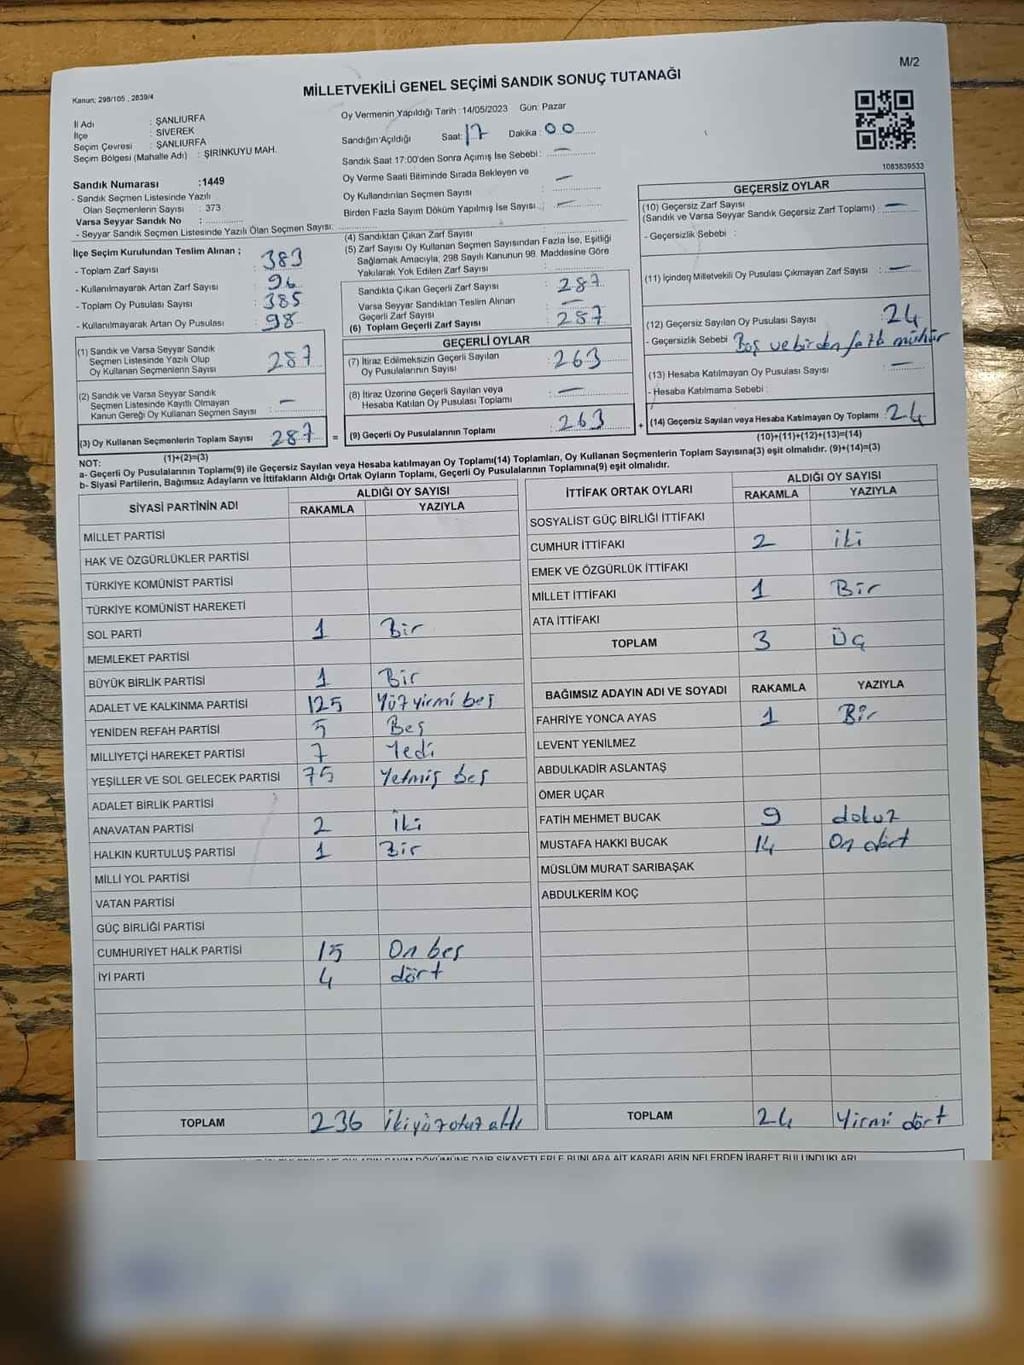 M/2
Kanun: 298/105 , 2839/4
MİLLETVEKİLİ GENEL SEÇİMİ SANDIK SONUÇ TUTANAĞI
İl Adı : ŞANLIURFA
İlçe : SİVEREK
Seçim Çevresi : ŞANLIURFA
Seçim Bölgesi (Mahalle Adı) : ŞİRİNKUYU MAH.
Oy Vermenin Yapıldığı Tarih : 14/05/2023 Gün: Pazar
Sandığın Açıldığı Saat: 17 Dakika : 00
Sandık Saat 17:00'den Sonra Açımış İse Sebebi : —
Oy Verme Saati Bitiminde Sırada Bekleyen ve
Oy Kullandırılan Seçmen Sayısı : —
Birden Fazla Sayım Döküm Yapılmış İse Sayısı : —
1083839533
Sandık Numarası :1449
- Sandık Seçmen Listesinde Yazılı
Olan Seçmenlerin Sayısı : 373
Varsa Seyyar Sandık No :
- Seyyar Sandık Seçmen Listesinde Yazılı Olan Seçmen Sayısı:
İlçe Seçim Kurulundan Teslim Alınan ;
- Toplam Zarf Sayısı : 383
- Kullanılmayarak Artan Zarf Sayısı : 96
- Toplam Oy Pusulası Sayısı : 385
- Kullanılmayarak Artan Oy Pusulası : 98
(1) Sandık ve Varsa Seyyar Sandık
Seçmen Listesinde Yazılı Olup
Oy Kullanan Seçmenlerin Sayısı : 287
(2) Sandık ve Varsa Seyyar Sandık
Seçmen Listesinde Kayıtlı Olmayan
Kanun Gereği Oy Kullanan Seçmen Sayısı : —
(3) Oy Kullanan Seçmenlerin Toplam Sayısı : 287
(1)+(2)=(3)
(4) Sandıktan Çıkan Zarf Sayısı :
(5) Zarf Sayısı Oy Kullanan Seçmen Sayısından Fazla İse, Eşitliği
Sağlamak Amacıyla, 298 Sayılı Kanunun 98. Maddesine Göre
Yakılarak Yok Edilen Zarf Sayısı :
Sandıkta Çıkan Geçerli Zarf Sayısı : 287
Varsa Seyyar Sandıktan Teslim Alınan
Geçerli Zarf Sayısı : —
(6) Toplam Geçerli Zarf Sayısı : 287
GEÇERLİ OYLAR
(7) İtiraz Edilmeksizin Geçerli Sayılan
Oy Pusulalarının Sayısı : 263
(8) İtiraz Üzerine Geçerli Sayılan veya
Hesaba Katılan Oy Pusulası Toplamı : —
= (9) Geçerli Oy Pusulalarının Toplamı : 263 +
GEÇERSİZ OYLAR
(10) Geçersiz Zarf Sayısı
(Sandık ve Varsa Seyyar Sandık Geçersiz Zarf Toplamı) : —
- Geçersizlik Sebebi :
(11) İçinden Milletvekili Oy Pusulası Çıkmayan Zarf Sayısı : —
(12) Geçersiz Sayılan Oy Pusulası Sayısı : 24
- Geçersizlik Sebebi : Boş ve birden fazla mühür
(13) Hesaba Katılmayan Oy Pusulası Sayısı : —
- Hesaba Katılmama Sebebi :
(14) Geçersiz Sayılan veya Hesaba Katılmayan Oy Toplamı : 24
(10)+(11)+(12)+(13)=(14)
NOT:
a- Geçerli Oy Pusulalarının Toplamı(9) ile Geçersiz Sayılan veya Hesaba katılmayan Oy Toplamı(14) Toplamları, Oy Kullanan Seçmenlerin Toplam Sayısına(3) eşit olmalıdır. (9)+(14)=(3)
b- Siyasi Partilerin, Bağımsız Adayların ve İttifakların Aldığı Ortak Oyların Toplamı, Geçerli Oy Pusulalarının Toplamına(9) eşit olmalıdır.
SİYASİ PARTİNİN ADI
ALDIĞI OY SAYISI
RAKAMLA YAZIYLA
MİLLET PARTİSİ
HAK VE ÖZGÜRLÜKLER PARTİSİ
TÜRKİYE KOMÜNİST PARTİSİ
TÜRKİYE KOMÜNİST HAREKETİ
SOL PARTİ 1 Bir
MEMLEKET PARTİSİ
BÜYÜK BİRLİK PARTİSİ 1 Bir
ADALET VE KALKINMA PARTİSİ 125 Yüz yirmi beş
YENİDEN REFAH PARTİSİ 5 Beş
MİLLİYETÇİ HAREKET PARTİSİ 7 Yedi
YEŞİLLER VE SOL GELECEK PARTİSİ 75 Yetmiş beş
ADALET BİRLİK PARTİSİ
ANAVATAN PARTİSİ 2 İki
HALKIN KURTULUŞ PARTİSİ 1 Bir
MİLLİ YOL PARTİSİ
VATAN PARTİSİ
GÜÇ BİRLİĞİ PARTİSİ
CUMHURİYET HALK PARTİSİ 15 On beş
İYİ PARTİ 4 dört
TOPLAM 236 İkiyüzotuz altı
İTTİFAK ORTAK OYLARI
ALDIĞI OY SAYISI
RAKAMLA YAZIYLA
SOSYALİST GÜÇ BİRLİĞİ İTTİFAKI
CUMHUR İTTİFAKI 2 iki
EMEK VE ÖZGÜRLÜK İTTİFAKI
MİLLET İTTİFAKI 1 Bir
ATA İTTİFAKI
TOPLAM 3 Üç
BAĞIMSIZ ADAYIN ADI VE SOYADI RAKAMLA YAZIYLA
FAHRİYE YONCA AYAS 1 Bir
LEVENT YENİLMEZ
ABDULKADİR ASLANTAŞ
ÖMER UÇAR
FATİH MEHMET BUCAK 9 dokuz
MUSTAFA HAKKI BUCAK 14 On dört
MÜSLÜM MURAT SARIBAŞAK
ABDULKERİM KOÇ
TOPLAM 24 Yirmi dört